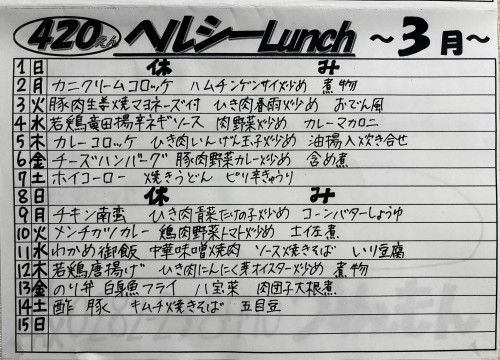 420えん ヘルシーLunch 〜3月〜
1 日 休 み
2 月 カニクリームコロッケ ハムチンゲンサイ炒め 煮物
3 火 豚肉生姜焼マヨネーズ付 ひき肉春雨炒め おでん風
4 水 若鶏竜田揚辛ネギソース 肉野菜炒め カレーマカロニ
5 木 カレーコロッケ ひき肉いんげん玉子炒め 油揚入炊き合せ
6 金 チーズハンバーグ 豚肉野菜カレー炒め 含め煮
7 土 ホイコーロー 焼きうどん ピリ辛きゅうり
8 日 休 み
9 月 チキン南蛮 ひき肉青菜たけの子炒め コーンバターしょうゆ
10 火 メンチカツカレー 鶏肉野菜トマト炒め 土佐煮
11 水 わかめ御飯 中華味噌焼肉 ソース焼きそば いり豆腐
12 木 若鶏唐揚げ ひき肉にんにく芽オイスター炒め 煮物
13 金 のり弁 白身魚フライ 八宝菜 肉団子大根煮
14 土 酢豚 キムチ焼きそば 五目豆
15 日